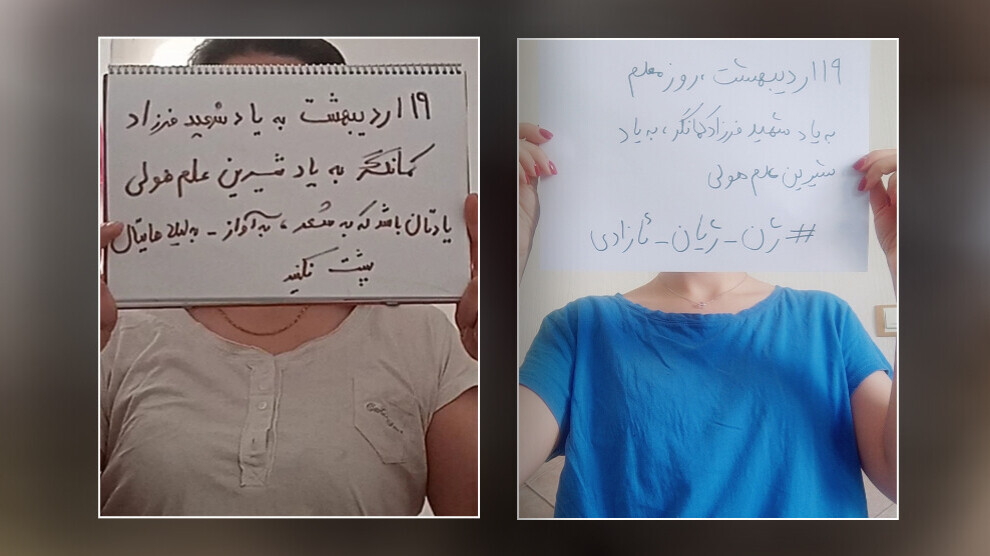 ۱۹ اردیبهشت به یاد شهید فرزاد
کمانگر به یاد شیرین علم هولی
یادتان باشد که به شعر، به آواز - به لیلاهایتان
پشت نکنید
۱۹ اردیبهشت، روز معلم
به یاد شهید فرزاد کمانگر، به یاد
شیرین علم هولی
#ژن_ژیان_ئازادی